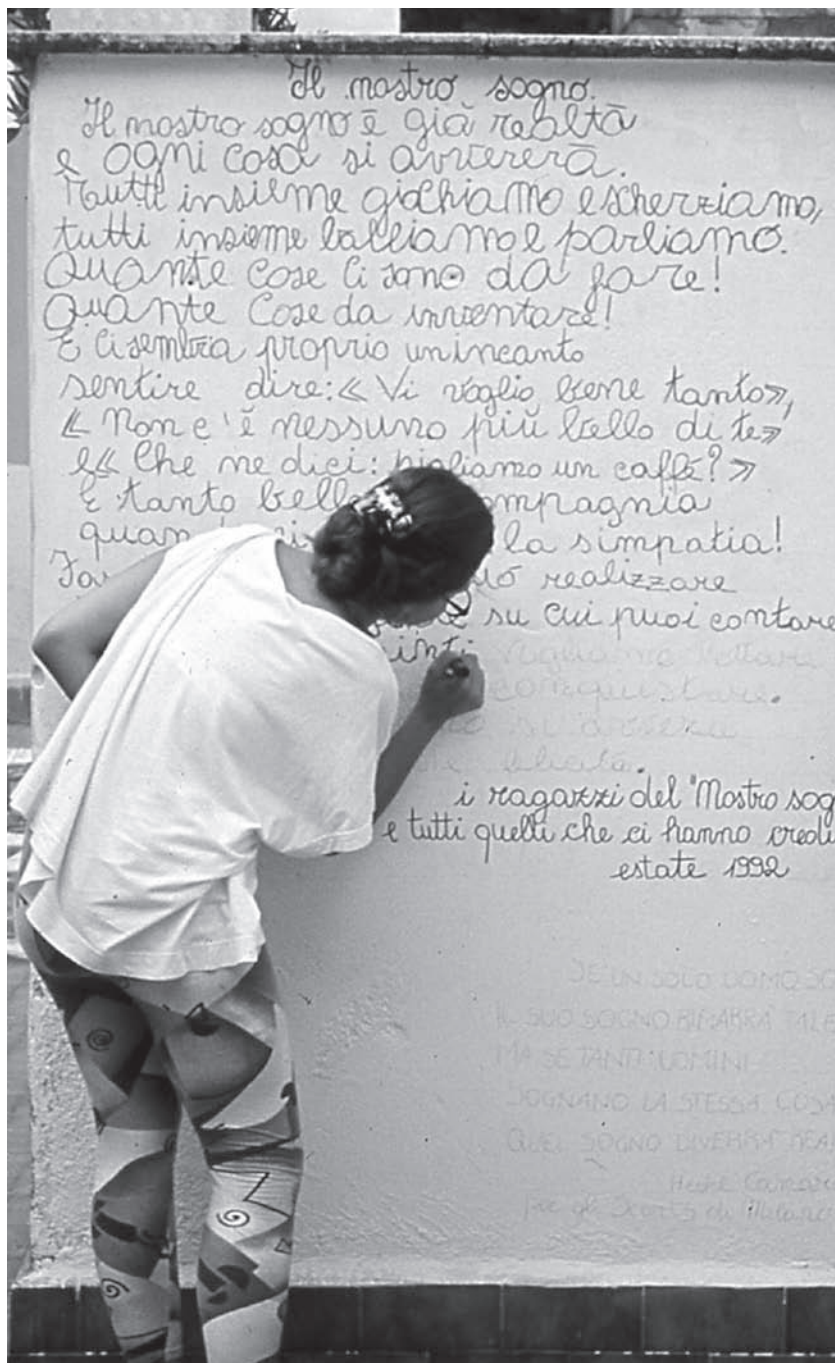 Il nostro sogno.
Il nostro sogno è già realtà
e ogni cosa si avvererà.
Tutti insieme giochiamo e scherziamo,
tutti insieme balliamo e parliamo.
Quante cose ci sono da fare!
Quante cose da inventare!
E ci sembra proprio un incanto
sentire dire: «Vi voglio bene tanto»,
«Non c'è nessuno più bello di te»
e «Che ne dici: pigliamo un caffè?»
È tanto bell ompagnia
quan la simpatia!
realizzare
su cui puoi contare
inti vogliamo lottare
conquistare.
si avvera
felicità.
i ragazzi del "Nostro sog
e tutti quelli che ci hanno credu
estate 1992
SE UN SOLO UOMO SO
IL SUO SOGNO RIMARRÀ TALE
MA SE TANTI UOMINI
SOGNANO LA STESSA COSA
QUEL SOGNO DIVERRÀ REA
per gli Scouts di Milano